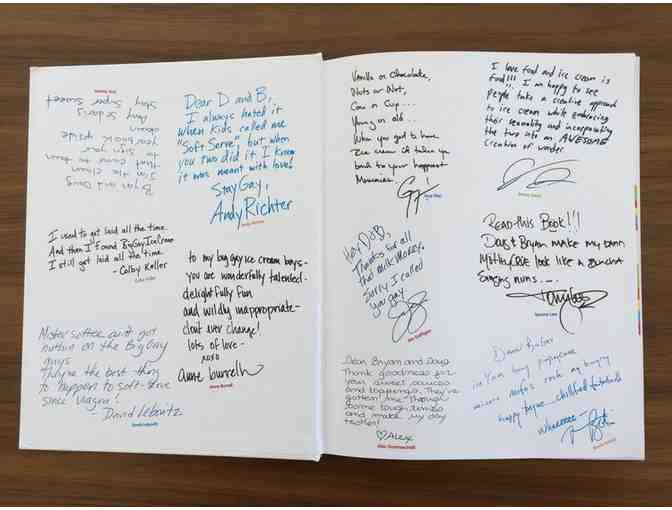 Dear D and B,
I always hated it
when kids called me
"Soft Serve", but when
you two did it I knew
it was meant with love!
Stay Gay,
Andy Richter
Bryan and Doug
I'm the clown
that come to town
bring your
book pride
down
Amy Sedaris
Stay Super Sweet
I used to get laid all the time.
And then I found Big Gay Ice Cream
I still get laid all the time.
- Colby Keller
to my big gay ice cream boys-
you are wonderfully talented-
delightfully fun
and wildly inappropriate-
dont ever change!
lots of love-
xoxo
anne burrell
Mister softee ain't got
nuthin on the Big Gay
guys
They're the best thing
to happen to soft-serve
since viagra!
David Lebovitz
Vanilla or Chocolate,
Nuts or Not,
Cone or Cup...
Young or old...
When you get to have
Ice cream it takes you
back to your happiest
Memories.
I love food and ice cream is
food!!! I am happy to see
people take a creative approach
to ice cream while embracing
their sexuality and incorporating
the two into an AWESOME
creation of wonder
Hey D&B,
Thanks for all
the milk money.
Sorry I called
you gay.
Read this Book!!!
Doug & Bryan make my damn
look like a
Singing nuns...
Dear Bryan and Doug
Thank goodness for
your sweet sauces
and toppings. They've
gotten me through
some tough times
and made my day
tastier!
♡ Alex
happy
Wheeeeee-